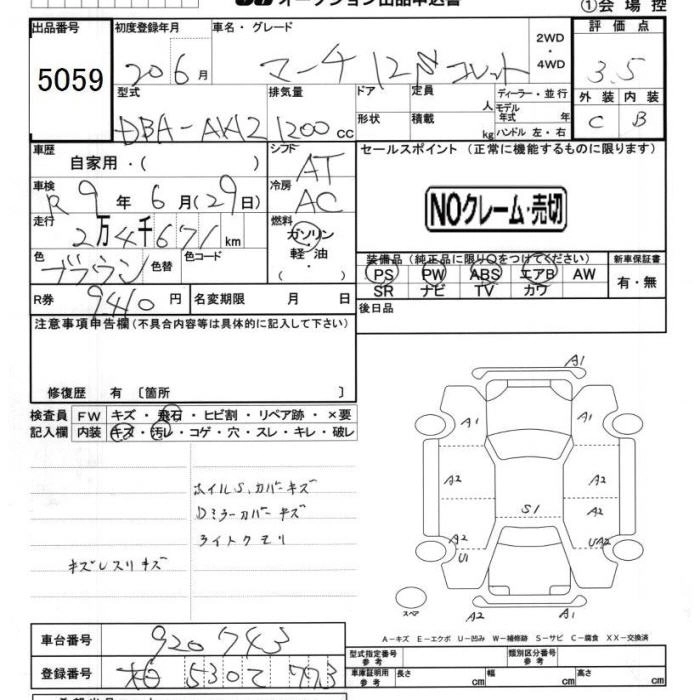 オークション出品申込書
①会場控
出品番号
5059
初度登録年月
20 6月
車名・グレード
マーチ 12N コレット
2WD
・
4WD
評価点
3.5
型式
DBA-AK12
排気量
1200cc
ドア
形状
定員
人
積載
kg
ディーラー・並行
モデル年式 年
ハンドル 左・右
外装 内装
C B
車歴
自家用・( )
シフト
AT
セールスポイント (正常に機能するものに限ります)
車検
R9年6月(29日)
冷房
AC
NOクレーム・売切
走行
2万4千671km
燃料
ガソリン
軽油
・
色
ブラウン
色替
色コード
装備品(純正品に限り○をつけてください)
新車保証書
PS PW ABS エアB AW
SR ナビ TV カワ
有・無
R券
9410円
名変期限 月 日
後日品
注意事項申告欄(不具合内容等は具体的に記入して下さい)
修復歴 有 〔箇所 〕
検査員
記入欄
FW キズ・飛石・ヒビ割・リペア跡・×要
内装 キズ・汚レ・コゲ・穴・スレ・キレ・破レ
ホイルS,カバーキズ
Dミラーカバーキズ
ライトクモリ
キズレスリキズ
A1
A1 A1
A2 A2
S1 A2
A2 UA2
U1
スペア
A2 A1
A-キズ E-エクボ U-凹み W-補修跡 S-サビ C-腐食 XX-交換済
車台番号
920743
型式指定番号
参考
類別区分番号
参考
登録番号
5302 773
車庫証明用
参考
長さ cm 幅 cm 高さ cm